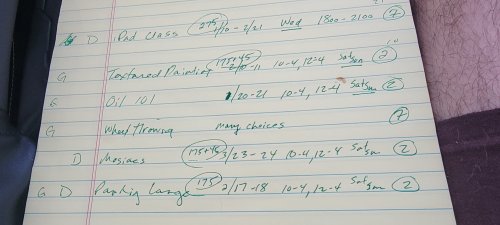 D iPad Class 275 1/10 - 2/21 Wed 1800 - 2100 7
G Textured Painting 175+45 2/10-11 10-4, 12-4 Sat Sun 2
G Oil 101 1/20-21 10-4, 12-4 Sat Sun 2
G Wheel throwing many choices 7
D Mosiacs 175+45 3/23-24 10-4, 12-4 Sat Sun 2
G D Painting Large 175 2/17-18 10-4, 12-4 Sat Sun 2